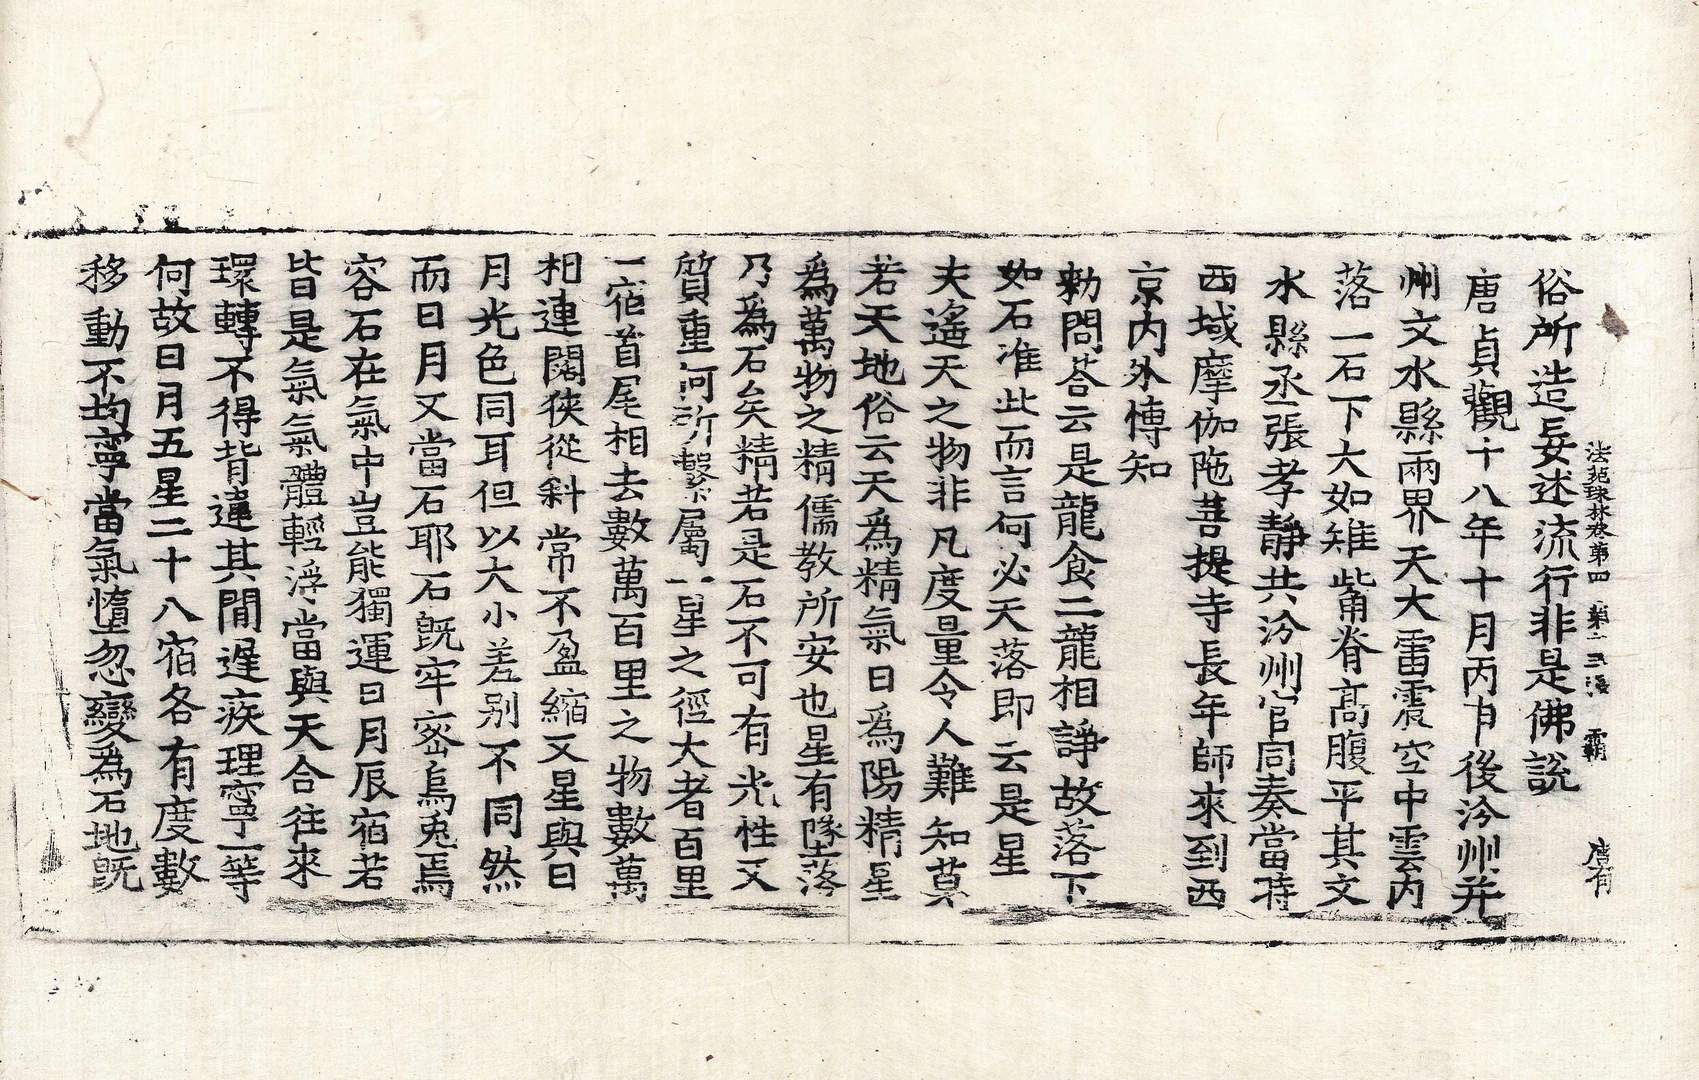 法苑珠林卷第四　第二三張　霸　唐有
俗所造妄述流行非是佛說
唐貞觀十八年十月丙申後汾州并
州文水縣兩界天大雷震空中雲內
落一石下大如碓觜脊高腹平其文
水縣丞張孝靜共汾州官同奏當時
西域摩伽陁菩提寺長年師來到西
京內外博知
勑問荅云是龍食二龍相諍故落下
如石准此而言何必天落即云是星
夫遙天之物非凡度量令人難知莫
若天地俗云天爲精氣日爲陽精星
爲萬物之精儒教所安也星有墜落
乃爲石矣精若是石不可有光性又
質重何所繫屬一星之徑大者百里
一宿首尾相去數萬百里之物數萬
相連闊狹從斜常不盈縮又星與日
月光色同耳但以大小差別不同然
而日月又當石耶石旣牢密烏兎焉
容石在氣中豈能獨運日月辰宿若
皆是氣氣體輕浮當與天合往來
環轉不得背違其閒遲疾理寧一等
何故日月五星二十八宿各有度數
移動不均寧當氣惰忽變爲石地旣